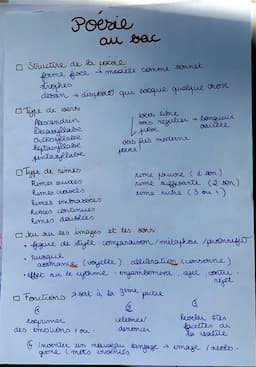 Poésie
au bac
□ Structure de la poésie
forme fixe → modèle comme sonnet
strophes
dessin → dispositif qui évoque quelque chose
□ Type de vers
Alexandrin
Decasyllabe
Octosyllabe
heptasyllabe
pentasyllabe
vers libre
vers régulier → longueur
vers plus moderne
□ Type de rimes
Rimes suivies
Rimes croisées
Rimes embrassées
Rimes continues
Rimes doublées
rime pauvre (1 son)
rime suffisante (2 son)
rime riche (3 ou +)
□ Jeu sur les images et les sons
• figure de style : comparaison / métaphore / personnif
• musique
assonance (voyelle) allitération (consonne)
• effet sur le rythme : enjambement,
rejet
□ Fonctions → sert à la 3ème partie
exprimer
des émotions / ou
célébrer /
dénoncer
facettes de
la réalité
inventer un nouveau langage → image /
(mots inventés